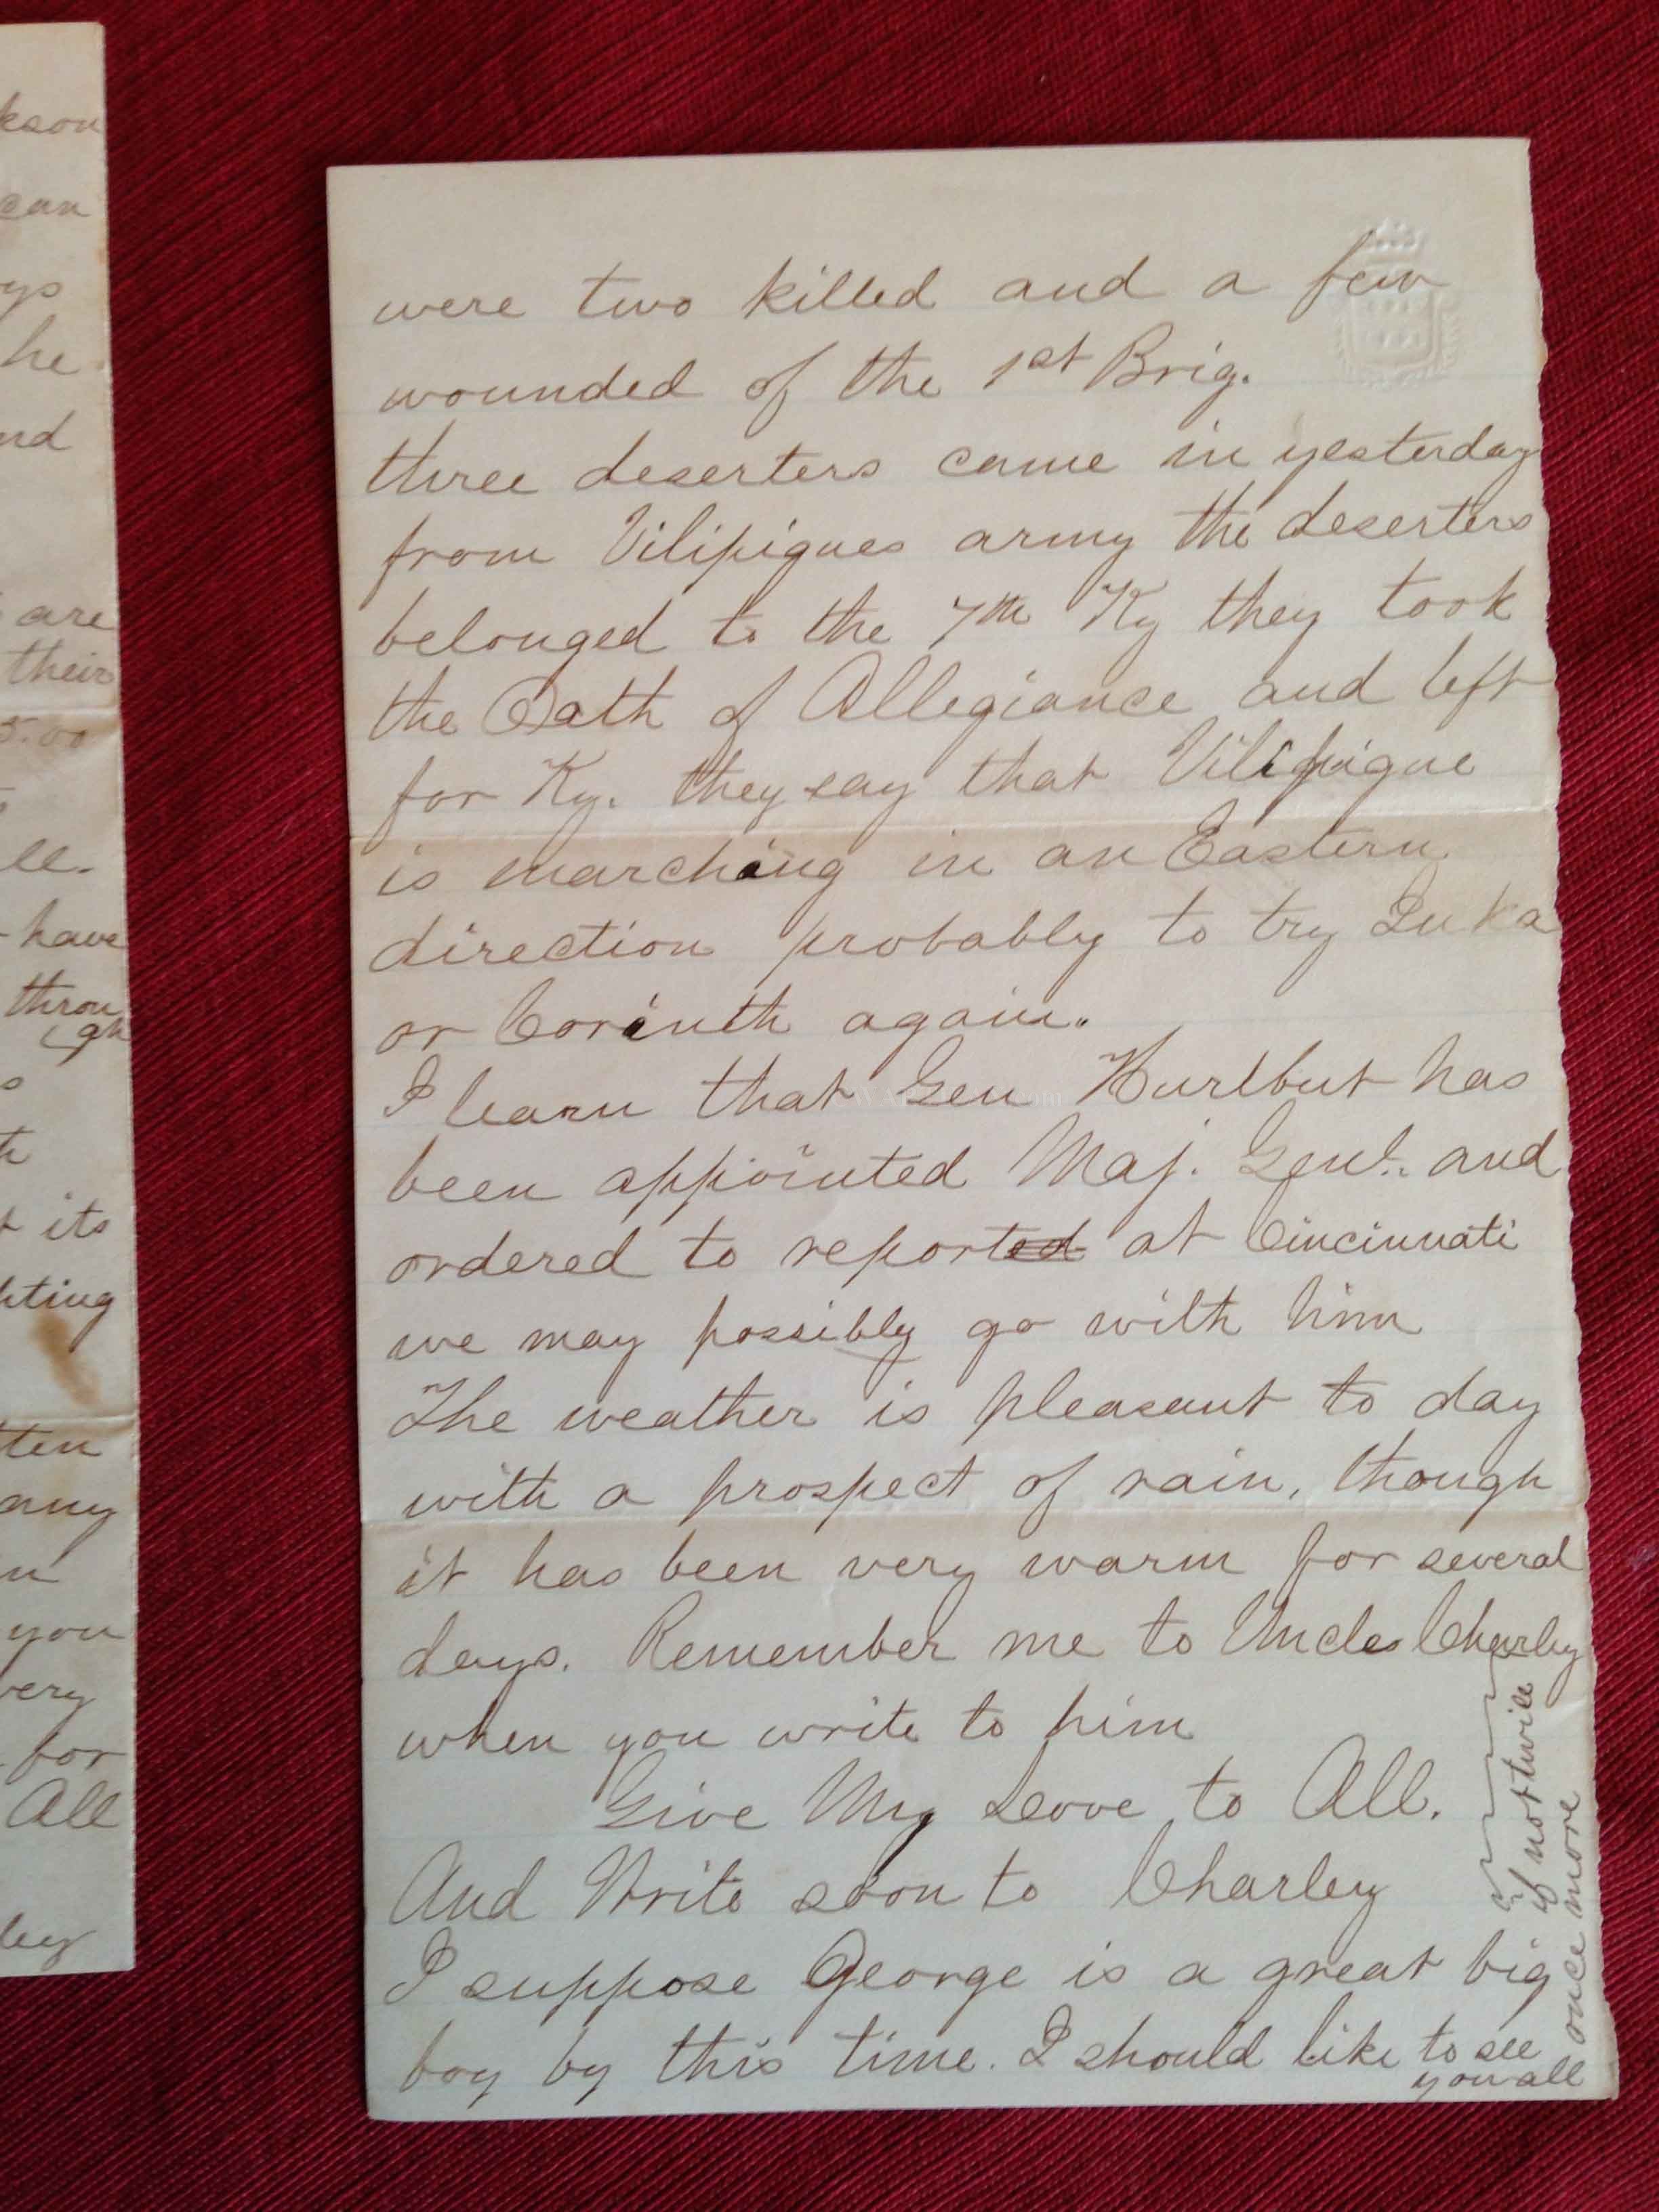 kson
can
ys
he
nd
are
their
5.00
ll.
have
throu
gh
its
hting
ten
any
you
very
for
All
ley
were two killed and a few
wounded of the 1st Brig.
three deserters came in yesterday
from Vilipigues army the deserters
belonged to the 7th Ky they took
the Oath of Allegiance and left
for Ky. they say that Vilipigue
is marching in an Eastern
direction probably to try Iuka
or Corinth again.
I learn that Gen Hurlbut has
been appointed Maj. Genl. and
ordered to reported at Cincinnati
we may possibly go with him
The weather is pleasant to day
with a prospect of rain, though
it has been very warm for several
days. Remember me to Uncle Charley
when you write to him
Give My Love to All.
And Write soon to Charley
I suppose George is a great big
boy by this time. I should like to see
you all
once more
if not twice